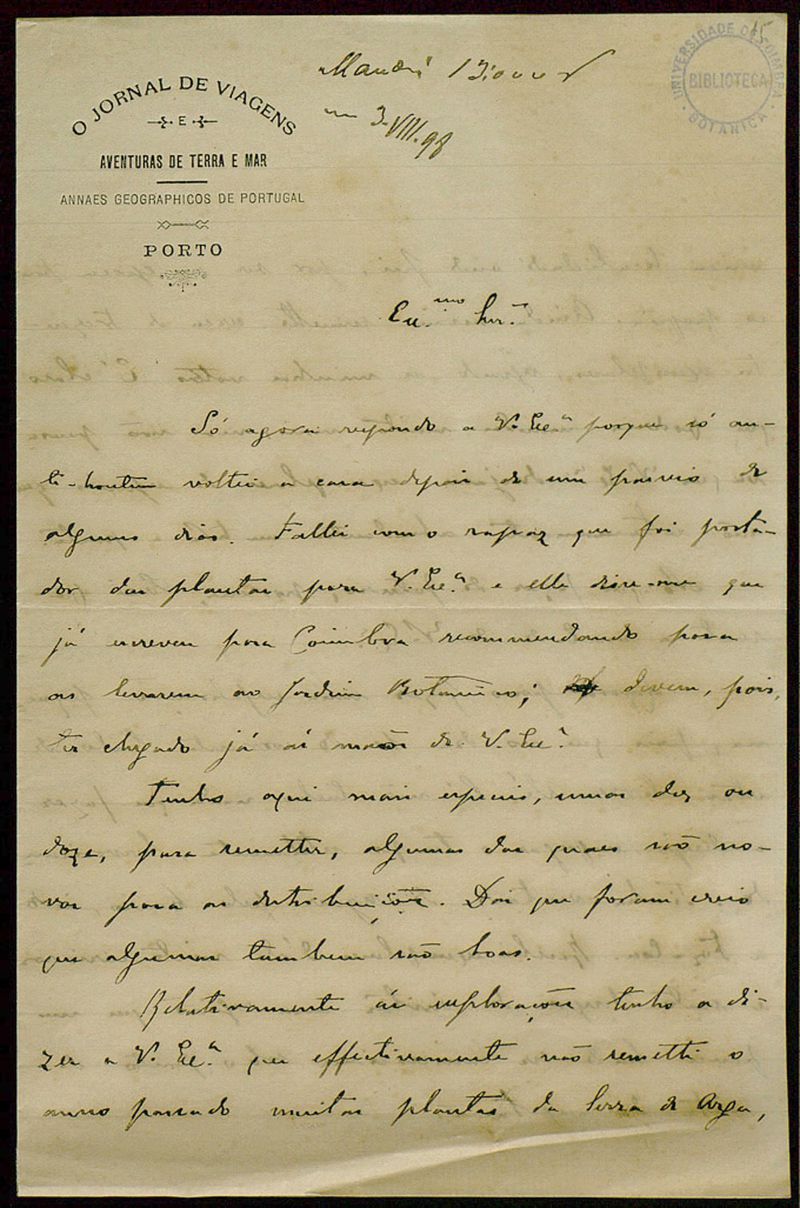 15
UNIVERSIDADE DE COIMBRA
BIBLIOTECA
BOTANICA
O JORNAL DE VIAGENS
E
AVENTURAS DE TERRA E MAR
ANNAES GEOGRAPHICOS DE PORTUGAL
PORTO
em 3.VIII.98
Ex.mo Snr.
Só agora respondo a V. Exª porque só an-
te-hontem voltei a casa depois de um passeio de
alguns dias. Fallei com o rapaz que foi porta-
dor das plantas para V. Exª e elle disse-me que
já escreveu para Coimbra recommendando para
as levarem ao Jardim Botanico; devem, pois,
ter chegado já ás mãos de V. Exª.
Tenho aqui mais especies, umas dez ou
doze, para remetter, algumas das quaes são no-
vas para as distribuições. Das que foram creio
que algumas tambem são boas.
Relativamente ás explorações tenho a di-
zer a V. Exª que effectivamente não remetti o
anno passado muitas plantas da Serra de Arga,